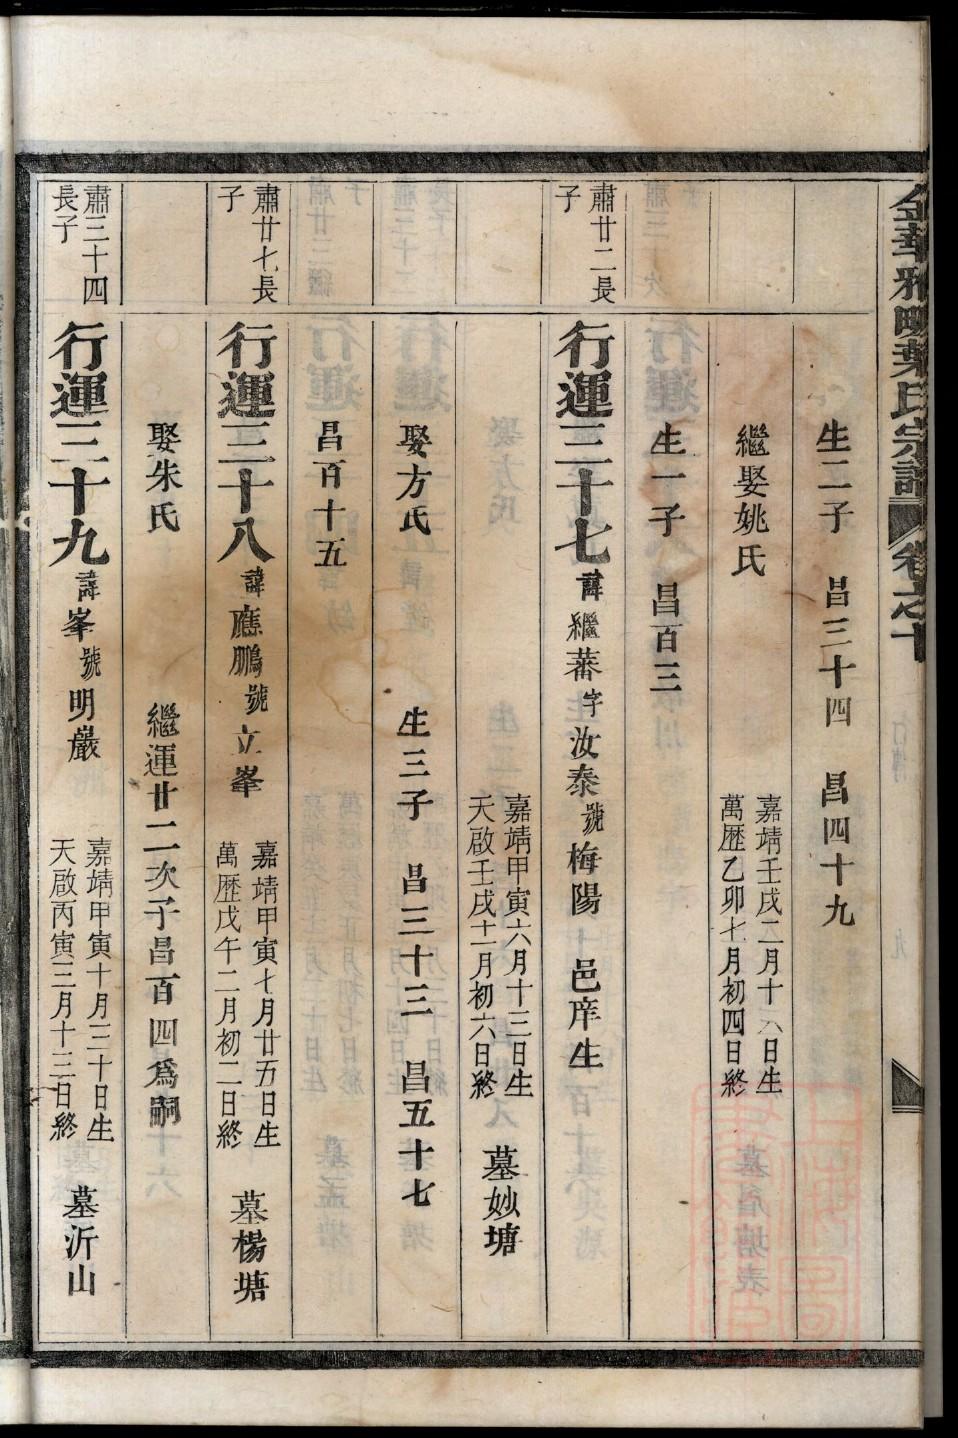 金華雅畈葉氏宗譜 卷之十
生二子 昌三十四 昌四十九
繼娶姚氏 嘉靖壬戌二月十六日生 萬歷乙卯七月初四日終
生一子 昌百三
肅廿二長子
行運三十七 諱繼蕃字汝泰號梅陽 邑庠生
嘉靖甲寅六月十三日生 天啟壬戌十一月初六日終 墓妙塘
娶方氏 生三子 昌三十三 昌五十七
昌百十五
肅廿七長子
行運三十八 諱應鵬號立峯 嘉靖甲寅七月廿五日生 萬歷戊午二月初二日終 墓楊塘
娶朱氏 繼運廿二次子昌百四爲嗣
肅三十四長子
行運三十九 諱峯號明巖 嘉靖甲寅十月三十日生 天啟丙寅三月十三日終 墓沂山